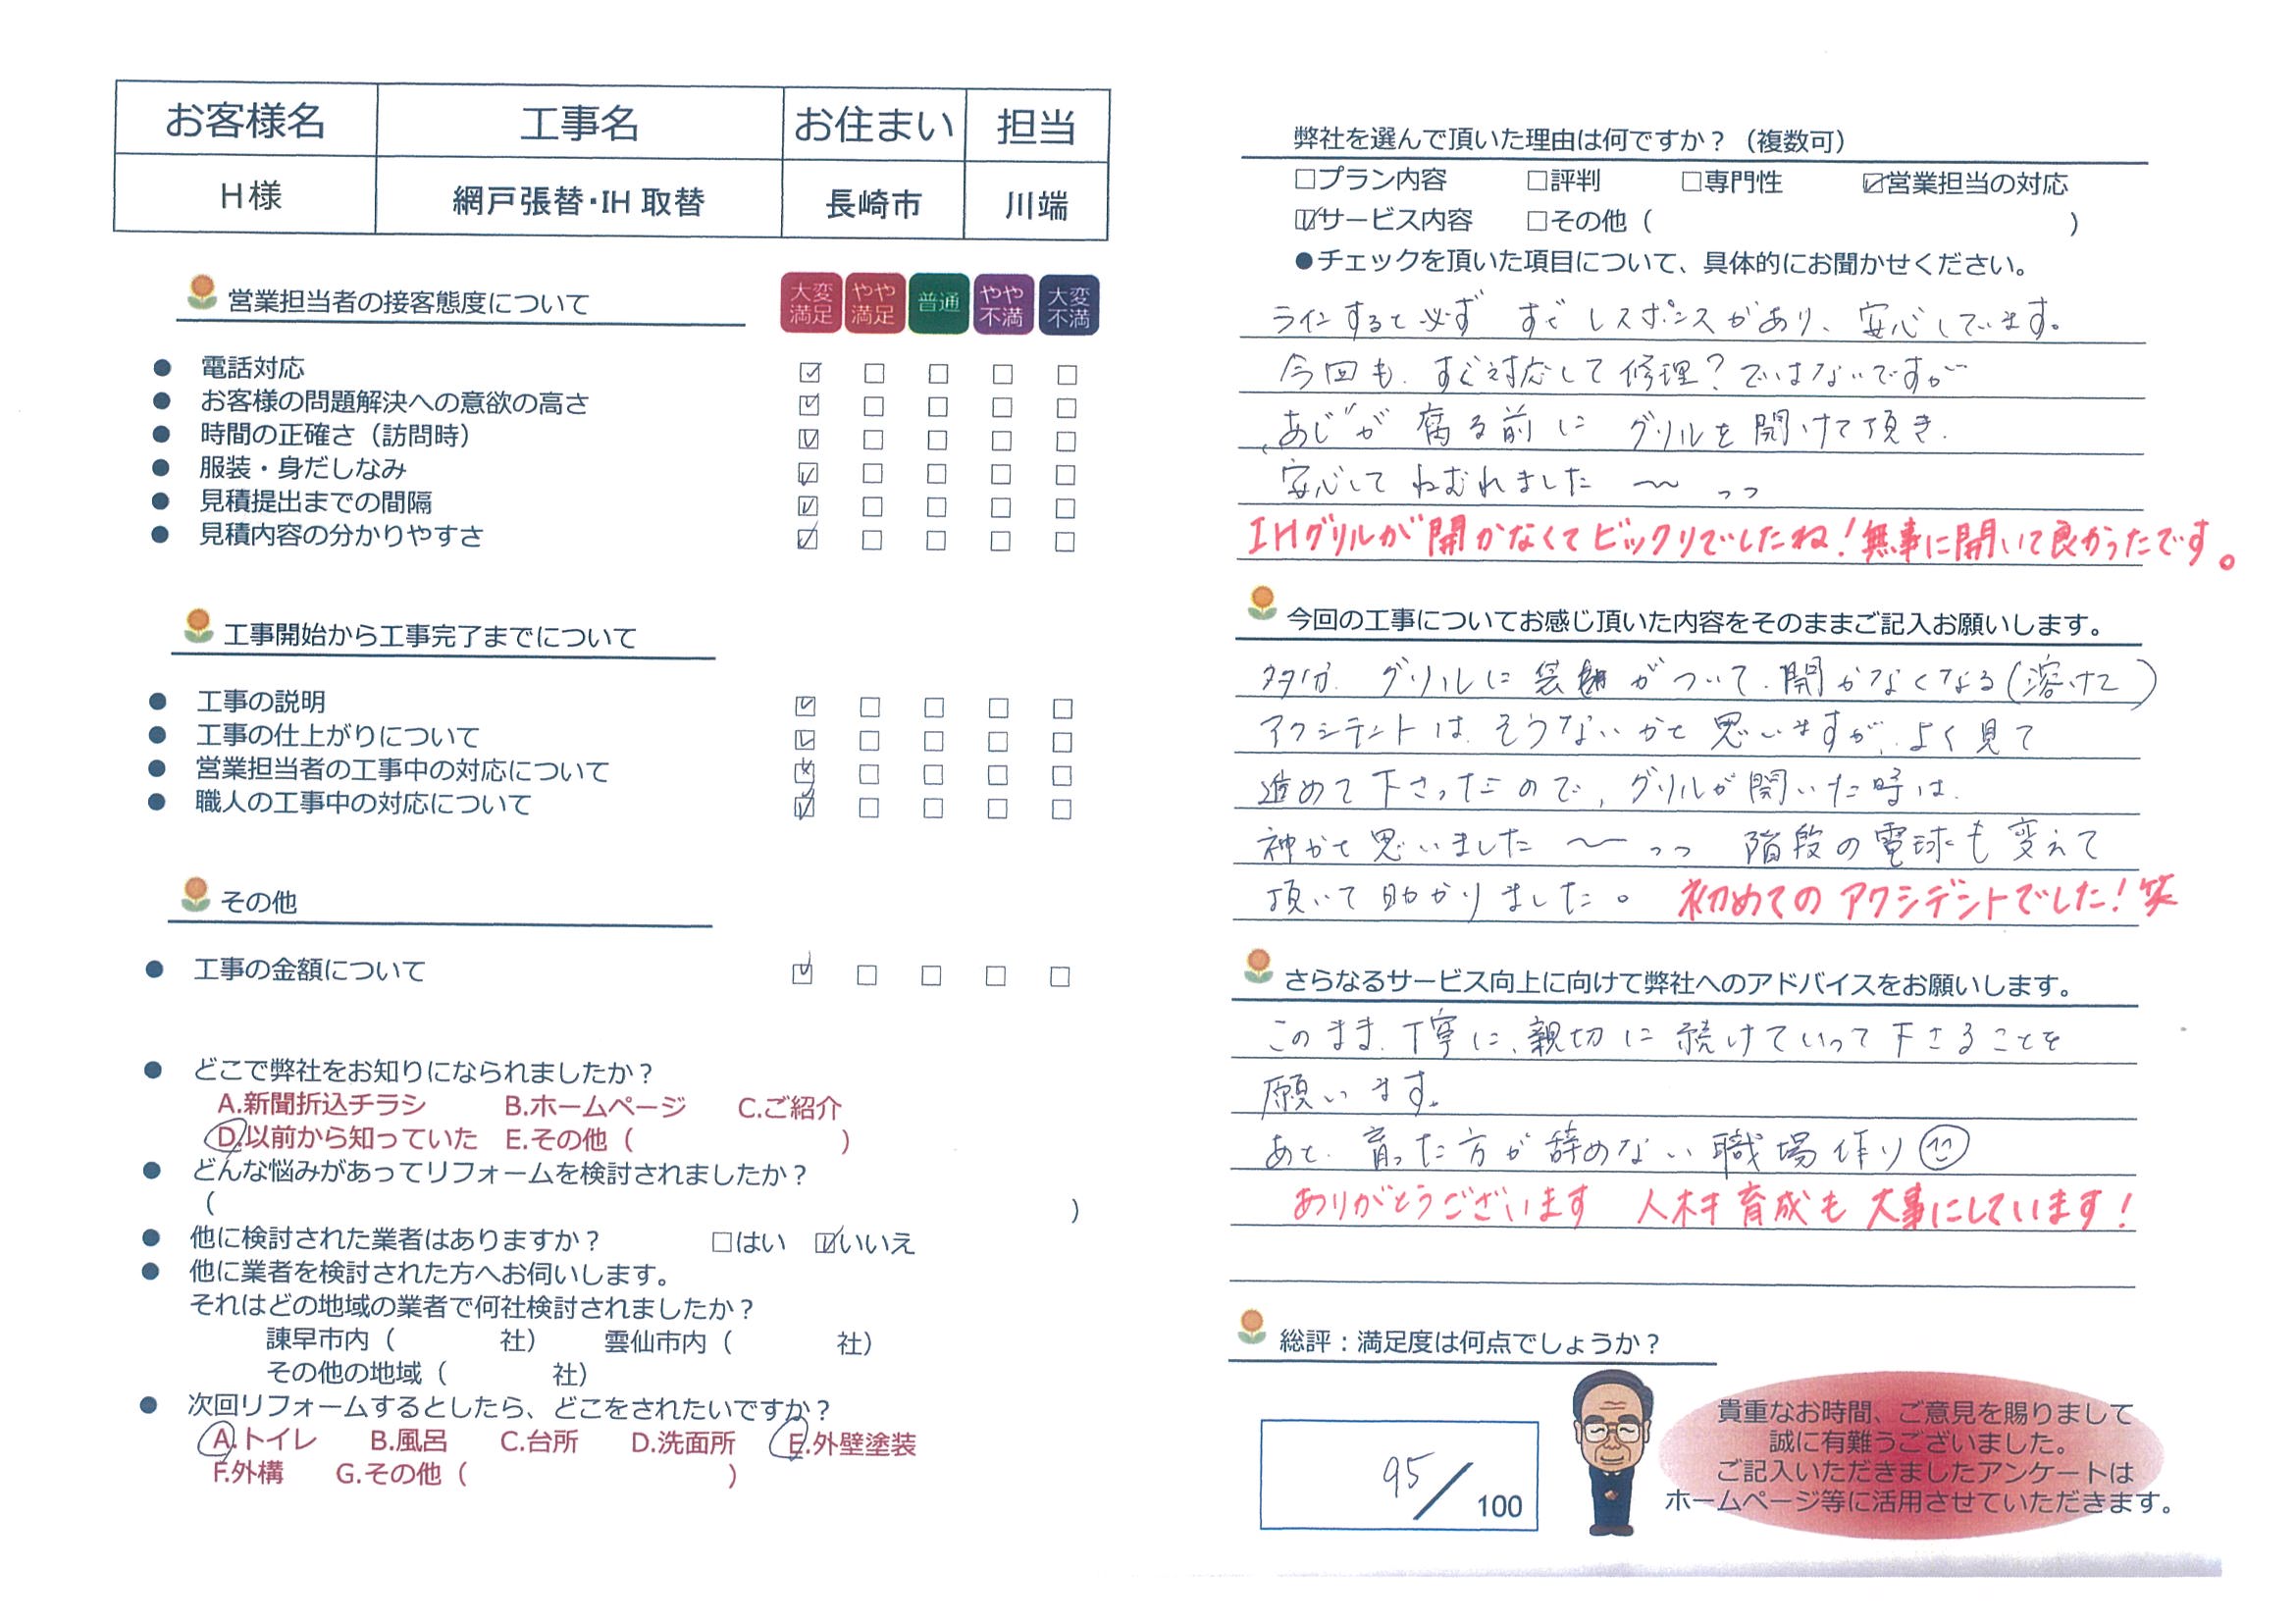 お客様名 工事名 お住まい 担当
H様 網戸張替・IH 取替 長崎市 川端
営業担当者の接客態度について
大変満足 やや満足 普通 やや不満 大変不満
● 電話対応 ☑ □ □ □ □
● お客様の問題解決への意欲の高さ ☑ □ □ □ □
● 時間の正確さ（訪問時） ☑ □ □ □ □
● 服装・身だしなみ ☑ □ □ □ □
● 見積提出までの間隔 ☑ □ □ □ □
● 見積内容の分かりやすさ ☑ □ □ □ □
工事開始から工事完了までについて
● 工事の説明 ☑ □ □ □ □
● 工事の仕上がりについて ☑ □ □ □ □
● 営業担当者の工事中の対応について ☑ □ □ □ □
● 職人の工事中の対応について ☑ □ □ □ □
その他
● 工事の金額について ☑ □ □ □ □
● どこで弊社をお知りになられましたか？
A.新聞折込チラシ B.ホームページ C.ご紹介
D.以前から知っていた E.その他（ ）
● どんな悩みがあってリフォームを検討されましたか？
（ ）
● 他に検討された業者はありますか？ □はい ☑いいえ
● 他に業者を検討された方へお伺いします。
それはどの地域の業者で何社検討されましたか？
諫早市内（ 社） 雲仙市内（ 社）
その他の地域（ 社）
● 次回リフォームするとしたら、どこをされたいですか？
A.トイレ B.風呂 C.台所 D.洗面所 E.外壁塗装
F.外構 G.その他（ ）
弊社を選んで頂いた理由は何ですか？（複数可）
□プラン内容 □評判 □専門性 ☑営業担当の対応
☑サービス内容 □その他（ ）
●チェックを頂いた項目について、具体的にお聞かせください。
ラインすると必ず すぐ レスポンスがあり、安心しています。
今回も、すぐ対応して修理？ではないですが
"あじ"が 腐る前に グリルを開けて頂き、
安心して ねむれました 〜 っっ
IHグリルが開かなくてビックリでしたね！無事に開いて良かったです。
今回の工事についてお感じ頂いた内容をそのままご記入お願いします。
多分、グリルに装飾がついて、開かなくなる（溶けて）
アクシデントは、そうないかと思いますが、よく見て
進めて下さったので、グリルが開いた時は、
神かと思いました 〜 っっ 階段の電球も変えて
頂いて助かりました。 初めてのアクシデントでした！笑
さらなるサービス向上に向けて弊社へのアドバイスをお願いします。
このまま、丁寧に、親切に続けていって下さることを
願います。
あと、育った方が辞めない職場作り
ありがとうございます 人材育成も大事にしています！
総評：満足度は何点でしょうか？
95/100
貴重なお時間、ご意見を賜りまして
誠に有難うございました。
ご記入いただきましたアンケートは
ホームページ等に活用させていただきます。